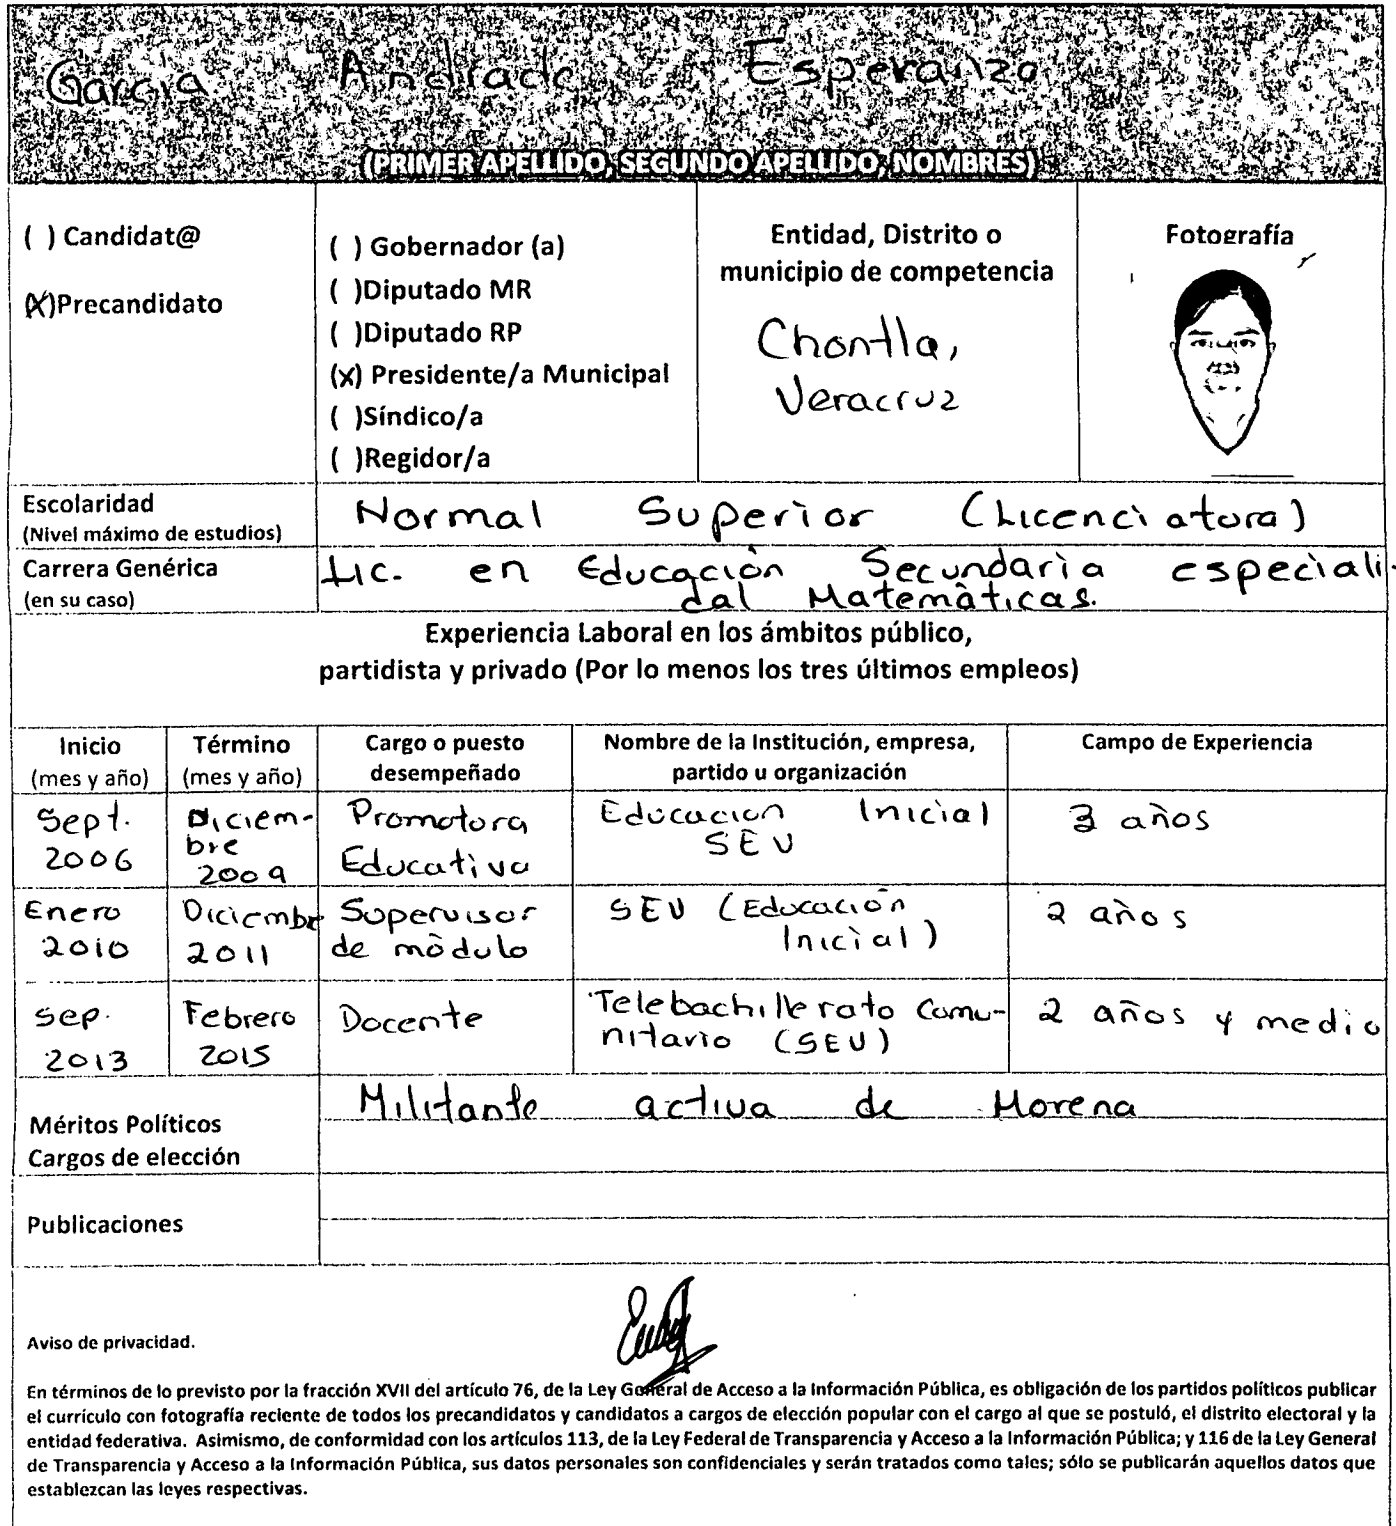 Garcia Andrade Esperanza
(PRIMER APELLIDO, SEGUNDO APELLIDO, NOMBRES)
( ) Candidat@
(X)Precandidato
( ) Gobernador (a)
( )Diputado MR
( )Diputado RP
(x) Presidente/a Municipal
( )Síndico/a
( )Regidor/a
Entidad, Distrito o
municipio de competencia
Chontla,
Veracruz
Fotografía
Escolaridad
(Nivel máximo de estudios)
Normal Superior (Licenciatura)
Carrera Genérica
(en su caso)
Lic. en Educaciòn Secundarìa especiali-
dal Matemàticas.
Experiencia Laboral en los ámbitos público,
partidista y privado (Por lo menos los tres últimos empleos)
Inicio
(mes y año)
Término
(mes y año)
Cargo o puesto
desempeñado
Nombre de la Institución, empresa,
partido u organización
Campo de Experiencia
Sept.
2006
Diciem-
bre
2009
Promotora
Educativa
Educacion Inicial
SEV
3 años
Enero
2010
Diciembre
2011
Supervisor
de mòdulo
SEV (Educaciòn
Inicìal)
2 años
sep.
2013
Febrero
2015
Docente
Telebachillerato Comu-
nitario (SEV)
2 años y medio
Méritos Políticos
Cargos de elección
Militante activa de Morena
Publicaciones
Aviso de privacidad.
En términos de lo previsto por la fracción XVII del artículo 76, de la Ley General de Acceso a la Información Pública, es obligación de los partidos políticos publicar
el currículo con fotografía reciente de todos los precandidatos y candidatos a cargos de elección popular con el cargo al que se postuló, el distrito electoral y la
entidad federativa. Asimismo, de conformidad con los artículos 113, de la Ley Federal de Transparencia y Acceso a la Información Pública; y 116 de la Ley General
de Transparencia y Acceso a la Información Pública, sus datos personales son confidenciales y serán tratados como tales; sólo se publicarán aquellos datos que
establezcan las leyes respectivas.